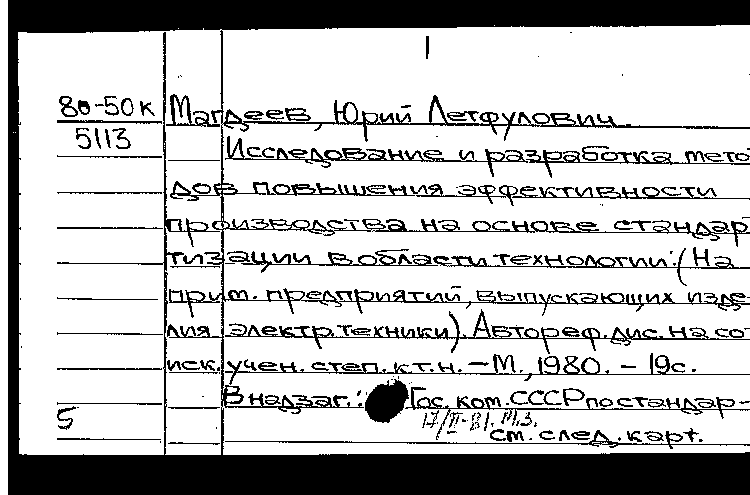 80-50к Магдеев, Юрий Летфулович.
5113 Исследование и разработка мето
дов повышения эффективности
производства на основе стандар
тизации в области технологии: (На
прим. предприятий, выпускающих изде
лия электр. техники). Автореф. дис. на со
иск. учен. степ. к.т.н. - М., 1980. - 19с.
В надзаг.: Гос. ком. СССР по стандар-
5 17/II-81. М.З.
см. след. карт.